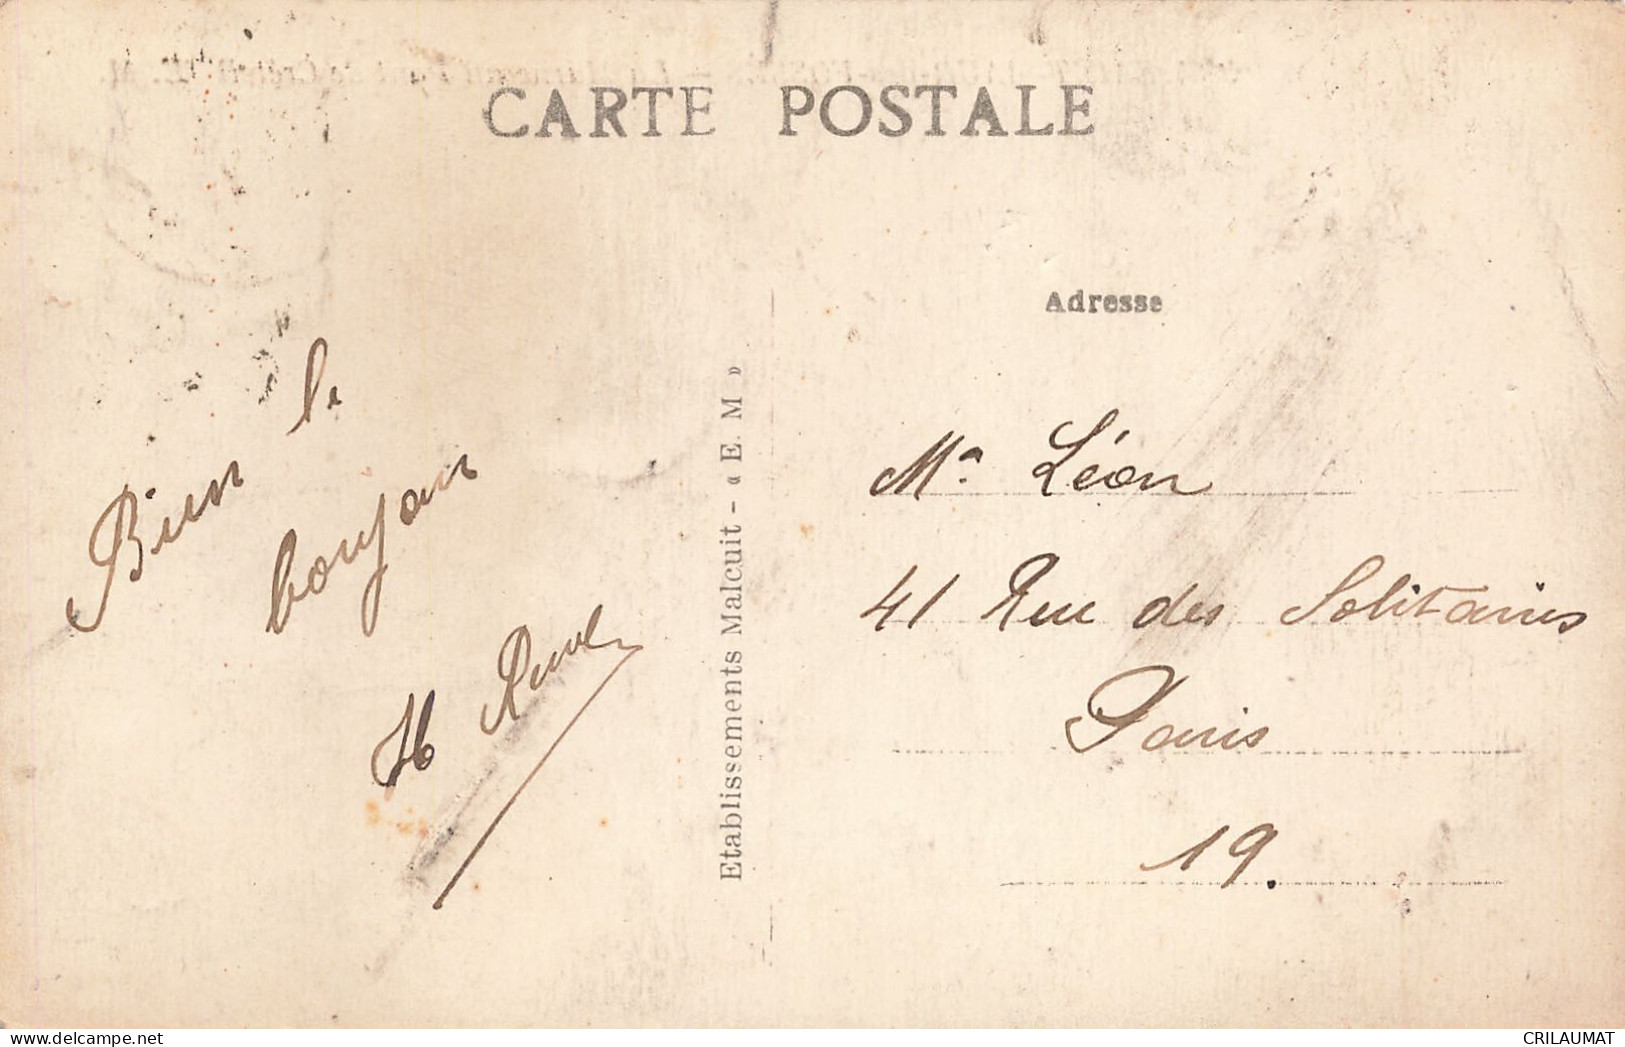 CARTE POSTALE
Bien le
bonjour
H
Etablissements Malcuit - « E. M »
Adresse
Ma. Léon
41 Rue des Solitaires
Paris
19.
CRILAUMAT